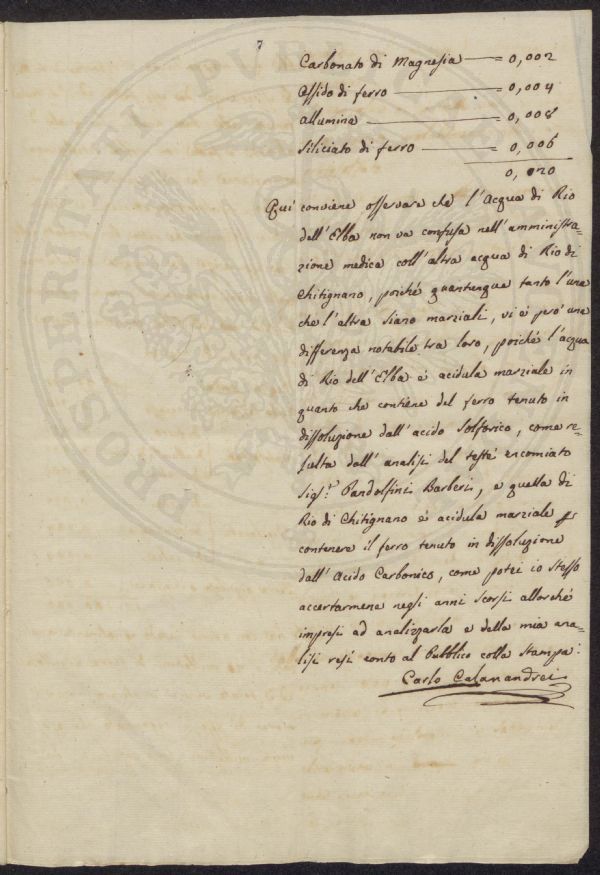 7
Carbonato di Magnesia = 0,002
Ossido di ferro = 0,004
Allumina = 0,008
Siliciato di ferro = 0,006
0,020
Qui conviene osservare che l'Acqua di Rio
dell'Elba non va confusa nell'amministra-
zione medica coll'altra acqua di Rio di
Chitignano, poiché quantunque tanto l'una
che l'altra siano marziali, vi è però una
differenza notabile tra loro, poiché l'acqua
di Rio dell'Elba è acidula marziale in
quanto che contiene del ferro tenuto in
dissoluzione dall'acido Solforico, come re-
sulta dall'analisi del testé encomiato
Sig.r Pandolfini Barberi, e quella di
Rio di Chitignano è acidula marziale p
contenere il ferro tenuto in dissoluzione
dall'Acido Carbonico, come potei io stesso
accertarmene negli anni scorsi allorché
impresi ad analizzarla e della mia ana-
lisi resi conto al Pubblico colla Stampa.
Carlo Calamandrei
PROSPERITATI PVBL